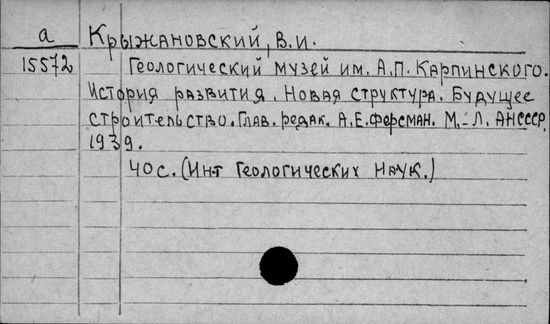 а Крыжановский, В.И.
15572 Геологический музей им. А.П. Карпинского.
История развития. Новая структура. Будущее
строительство. Глав. редак. А.Е. Ферсман. М.-Л. АНСССР,
1939.
40 с. (Ин-т Геологических Наук.)